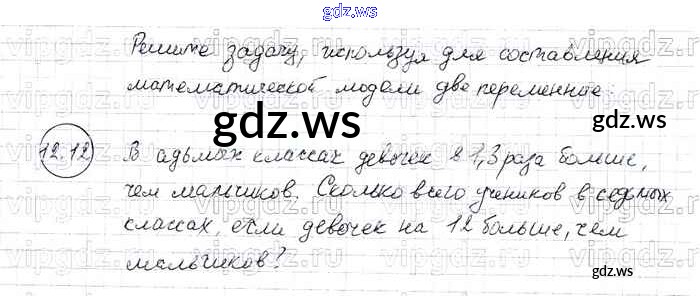 gdz.ws
Решите задачу, используя для составления
математической модели две переменные.
gdz.ws
12.12 В адьмых классах девочек в 1,3 раза больше,
чем мальчиков. Сколько всего учеников в седьмых
классах, если девочек на 12 больше, чем
мальчиков?
gdz.ws